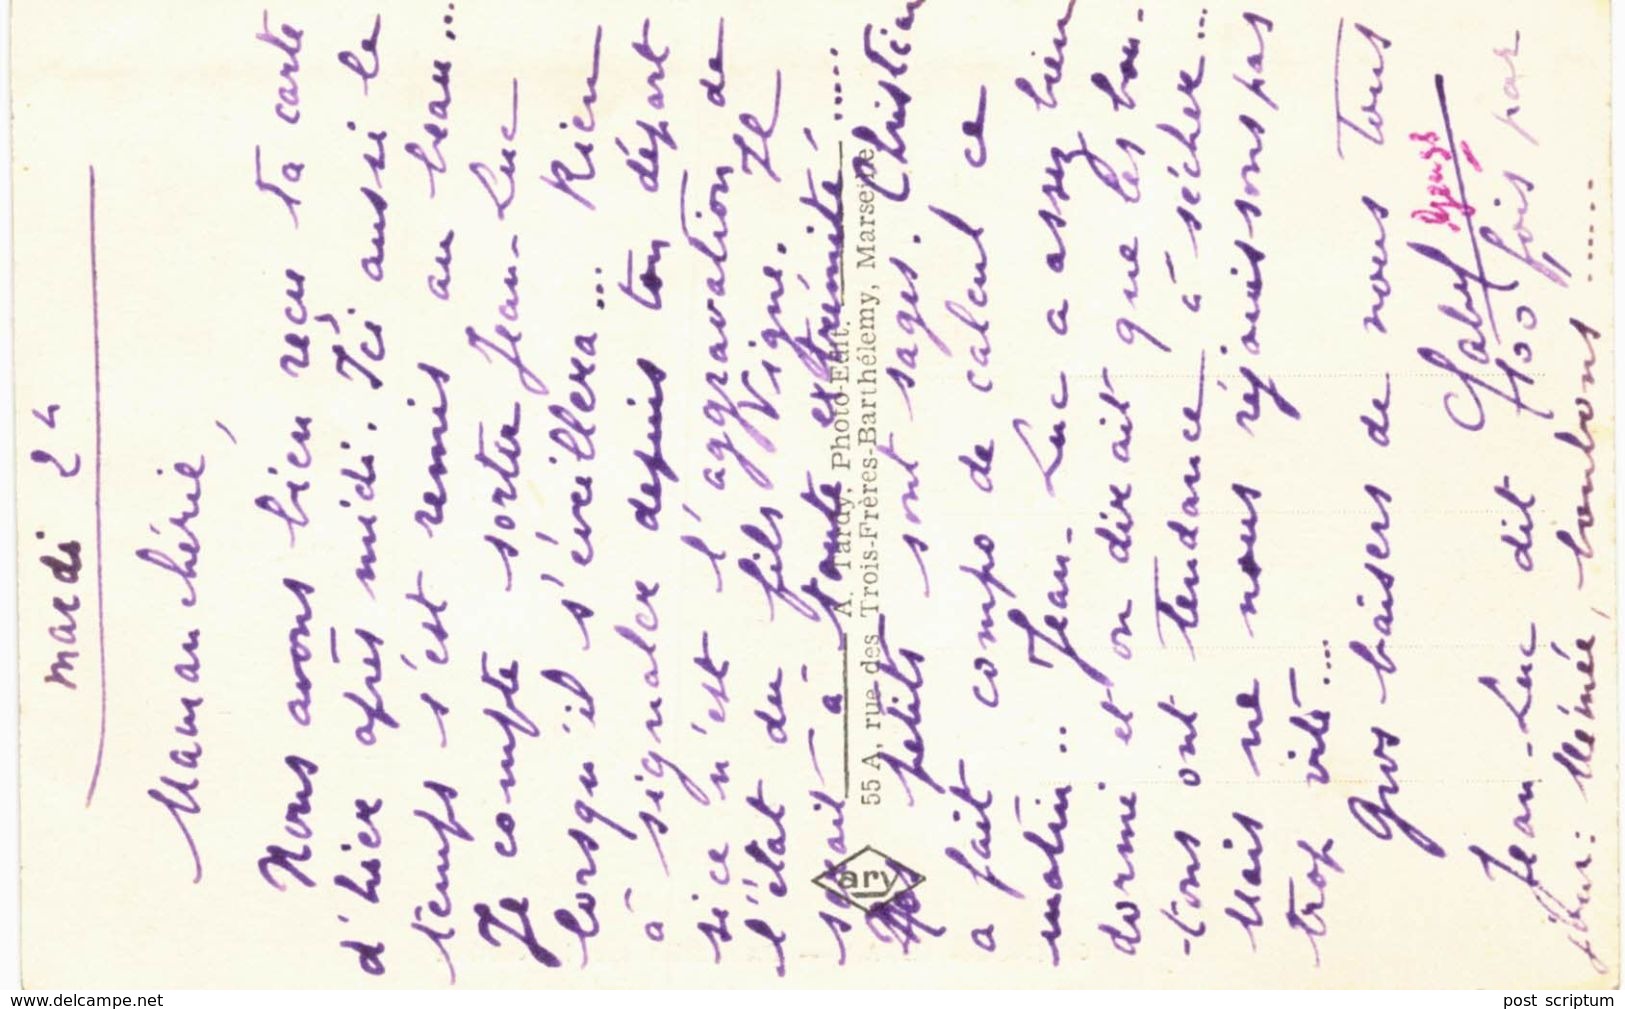 mardi 24
Maman chérie,
Nous avons bien reçu ta carte
d'hier après midi. Ici aussi le
temps s'est remis au beau...
Je compte sortir Jean-Luc
lorsqu'il s'éveillera... Rien
à signaler depuis ton départ
si ce n'est l'aggravation de
l'état du fils Vigne. Il
serait à toute extrémité.....
Les petits sont sages. Christian
a fait compo de calcul ce
matin.. Jean-Luc a assez bien
dormi et on dirait que les bou-
-tons ont tendance à sécher...
Mais ne nous réjouissons pas
trop vite....
Gros baisers de nous tous
Jean-Luc dit 100 fois par
jour: Mémée, bonbons.....
A. Tardy, Photo-Edit.
55 A, rue des Trois-Frères-Barthélemy, Marseille
ary
www.delcampe.net
post scriptum